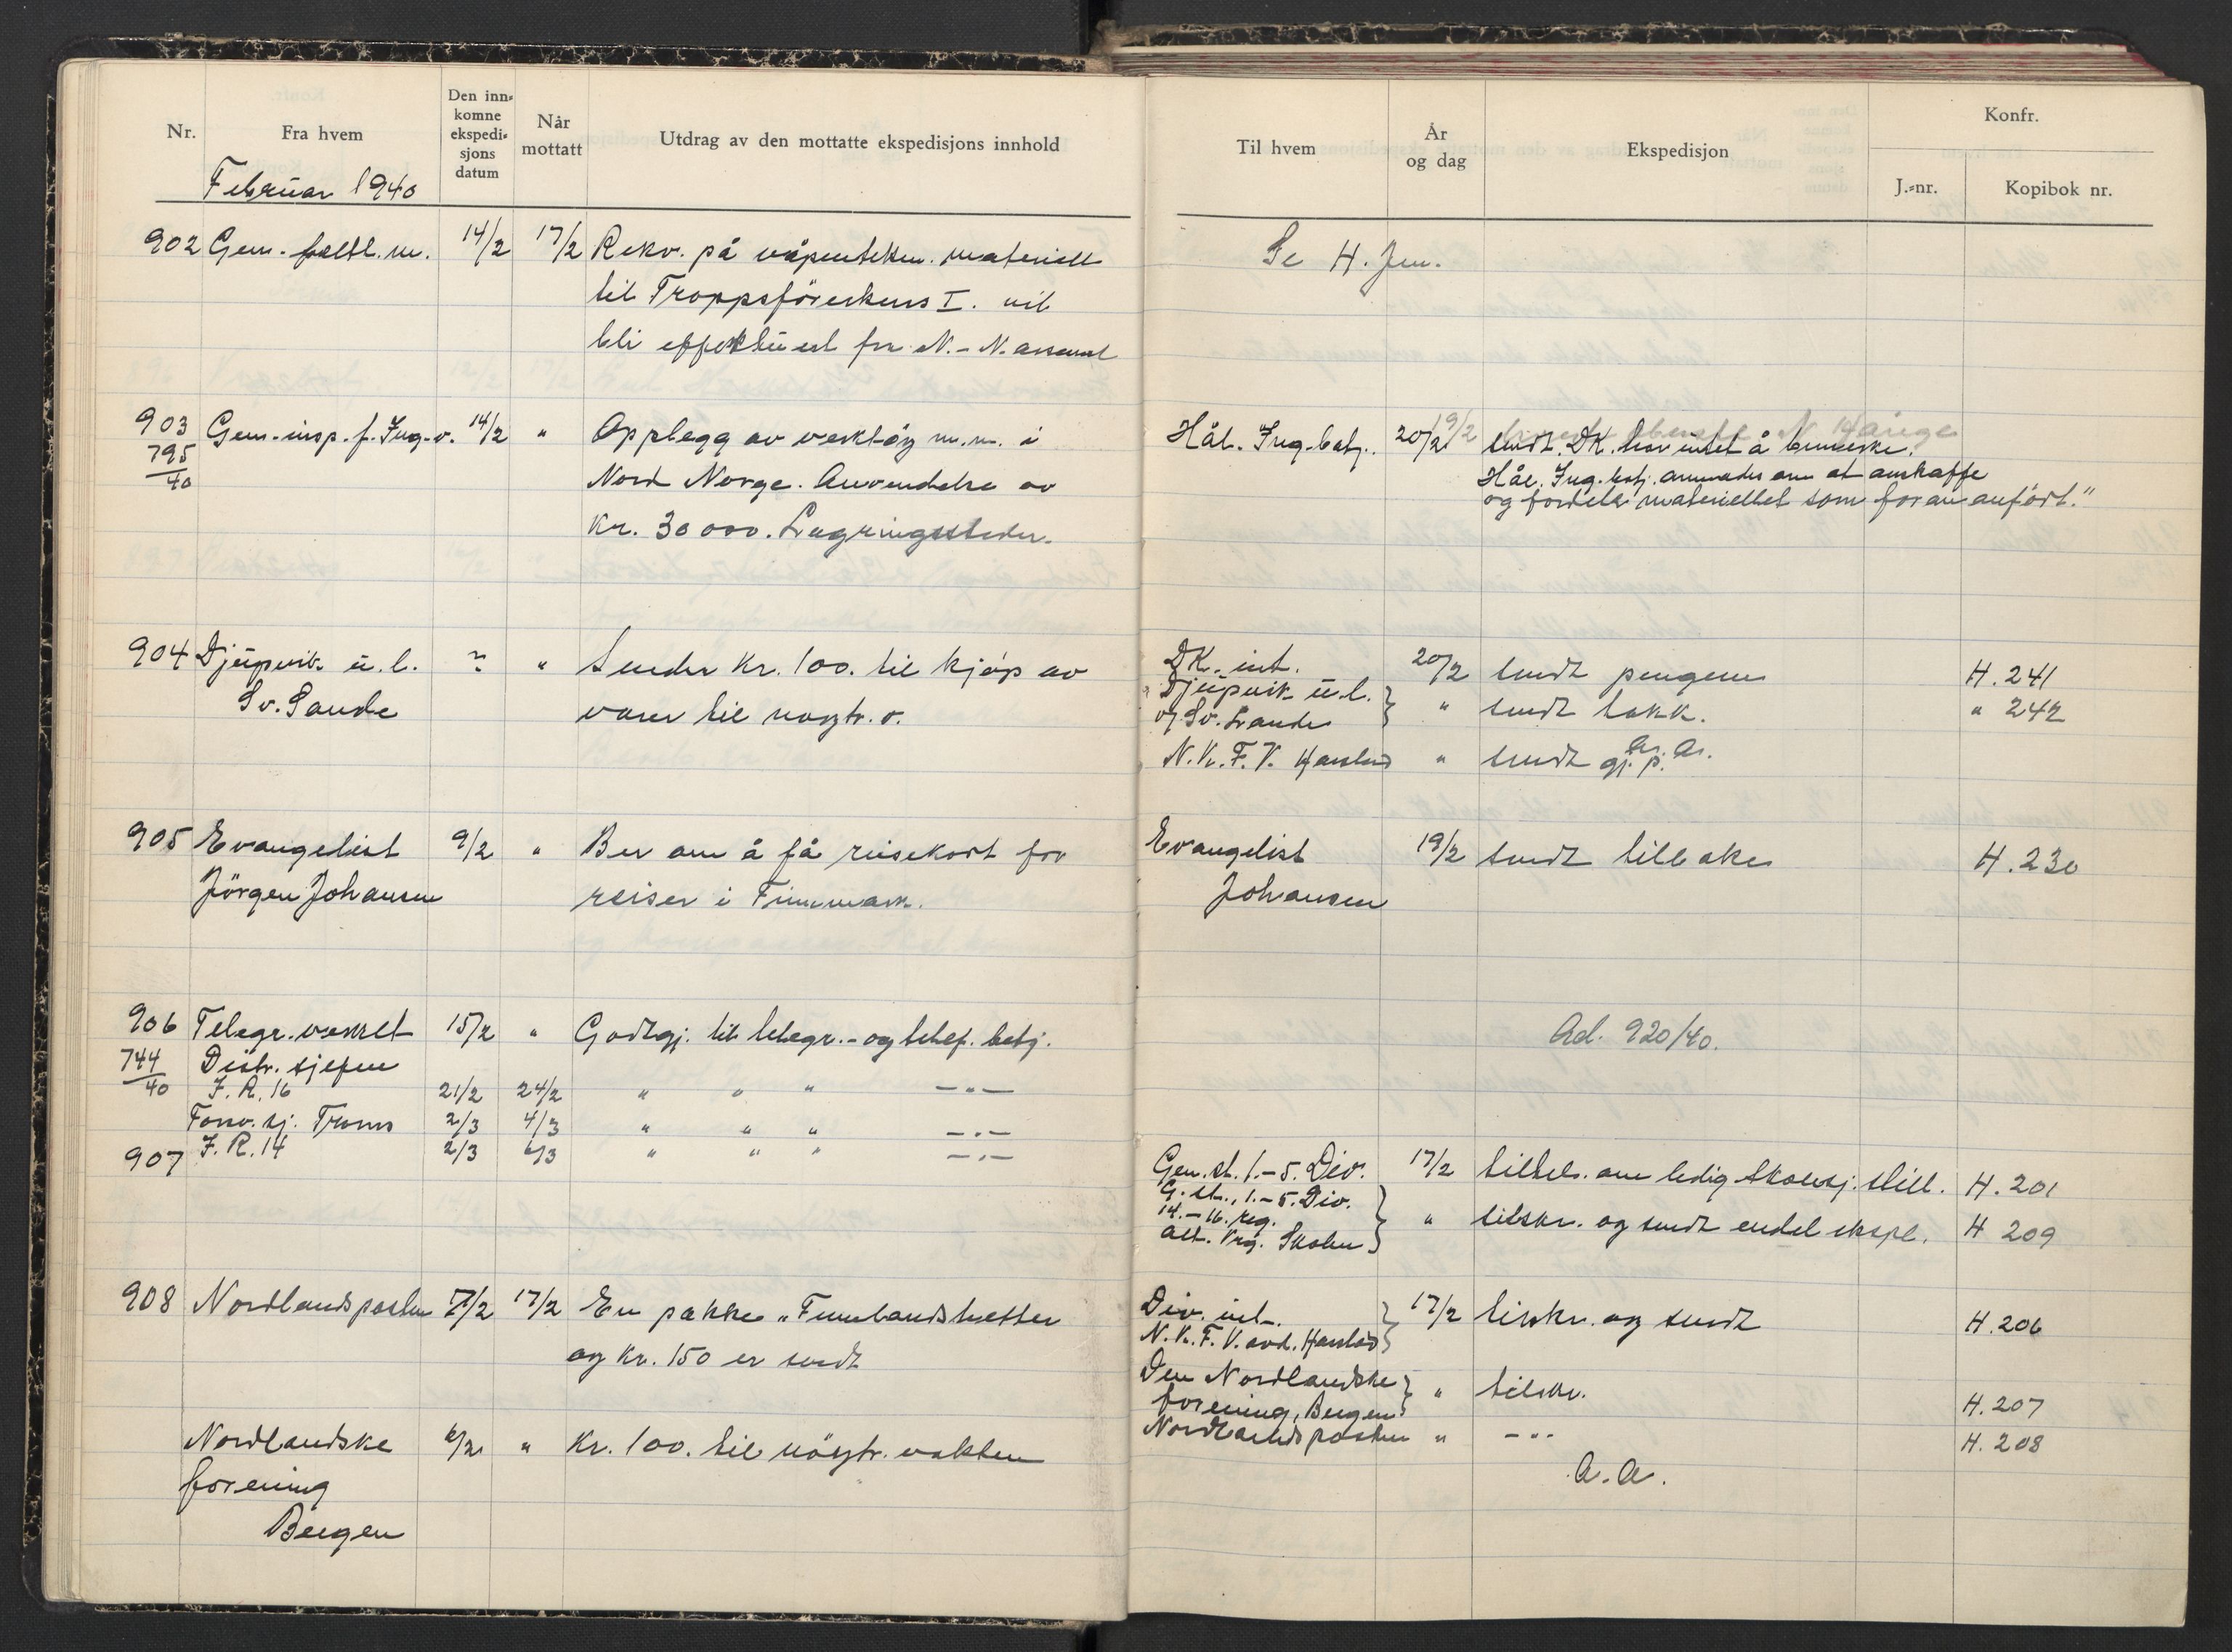 Nr.
Fra hvem
Den inn-
komne
ekspedi-
sjons
datum
Når
mottatt
Utdrag av den mottatte ekspedisjons innhold
Februar 1940
902 Gen.-feltt.m. 14/2 17/2 Rekv. på våpentekn. materiell
til Troppsförerkurs I. vil
bli effektuert fra N.-N. arsenal
903 Gen.-insp. f. Ing.-v. 14/2 " Opplegg av verktöy m.m. i
795/40 Nord Norge. Anvendelse av
Kr. 30 000. Lagringssteder.
904 Djupvik u.l. " Sender Kr. 100. til kjöp av
Sv. Sande varer til nöytr. v.
905 Evangelist 9/2 " Ber om å få reisekort for
Jörgen Johansen reiser i Finnmark.
906 Telegr.verket 15/2 " Godtgj. til telegr.- og telef. betj.
744/40 Distr. sjefen
I.R. 16 21/2 24/2 " " " —"—
Forsv.sj. Troms 2/3 4/3 " " " —"—
I.R. 14 2/3 6/3 " " " —"—
907
908 Nordlandsposten 7/2 17/2 En pakke "Finnlandshetter
og Kr. 150 er sendt
Nordlandske 6/2 " Kr. 100. til nöytr. vakten
forening
Bergen
Til hvem
År
og dag
Ekspedisjon
Konfr.
J.-nr.
Kopibok nr.
Se H. Jnr.
Hål. Ing.batj. 20/2 19/2 sendt. DK. har intet å bemerke.
Hål. Ing. batj. anmodes om at anskaffe
og fordele materiellet som foran anfört."
DK. int. 20/2 sendt pengene H. 241
Djupvik u.l. og Sv. Sande " sendt takk. " 242
N.K.F.V. Harstad " sendt gj. p. A. A.
Evangelist 19/2 sendt tilbake H. 230
Johansen
Ad. 920/40.
Gen.st. 1.-5. Div. 17/2 tilbels. om ledig skolesj. still. H. 201
G.st., 1.-5. Div.
14.-16. reg. " tilskr. og sendt endel ekspl. H 209
Alt. Skolen
Div. int. 17/2 tilskr. og sendt H. 206
N.K.F.V. avd. Harstad
Den Nordlandske " tilskr. H. 207
forening, Bergen
Nordlandsposten " —"— H. 208
A.A.